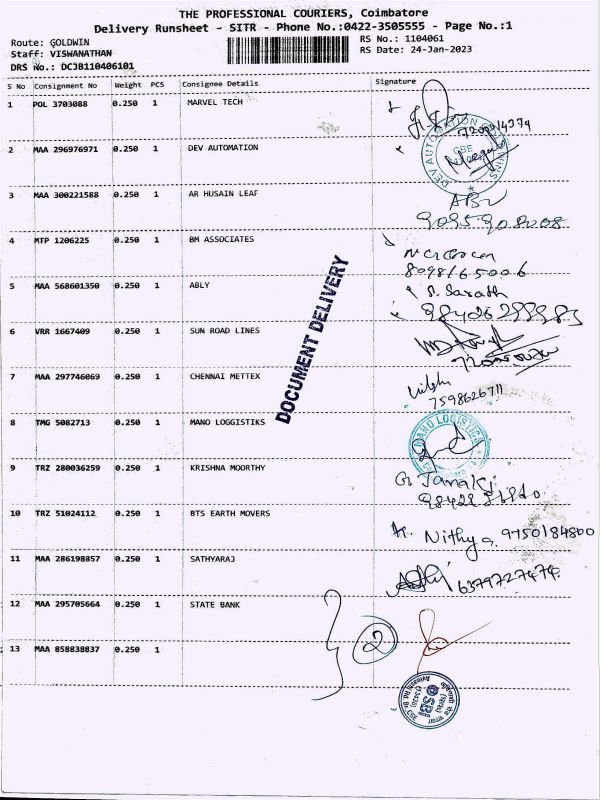 THE PROFESSIONAL COURIERS, Coimbatore
Delivery Runsheet - SITR - Phone No.:0422-3505555 - Page No.:1
Route: GOLDWIN RS No.: 1104061
Staff: VISWANATHAN RS Date: 24-Jan-2023
DRS No.: DCJB110406101
S No Consignment No Weight PCS Consignee Details Signature
1 POL 3703088 0.250 1 MARVEL TECH
2 MAA 296976971 0.250 1 DEV AUTOMATION
DEV AUTOMATION
CBE
3 MAA 300221588 0.250 1 AR HUSAIN LEAF
9095908008
4 MTP 1206225 0.250 1 BM ASSOCIATES
8098165006
5 MAA 568601350 0.250 1 ABLY
S. Sarath
6 VRR 1667409 0.250 1 SUN ROAD LINES
7 MAA 297746069 0.250 1 CHENNAI METTEX
7598626711
DOCUMENT DELIVERY
8 TMG 5082713 0.250 1 MANO LOGGISTIKS
MANO LOGISTICS
9 TRZ 280036259 0.250 1 KRISHNA MOORTHY
G. Janaki
10 TRZ 51024112 0.250 1 BTS EARTH MOVERS
Nithya 9750184800
11 MAA 286198857 0.250 1 SATHYARAJ
6379727474
12 MAA 295705664 0.250 1 STATE BANK
2
13 MAA 858838837 0.250 1
SBI